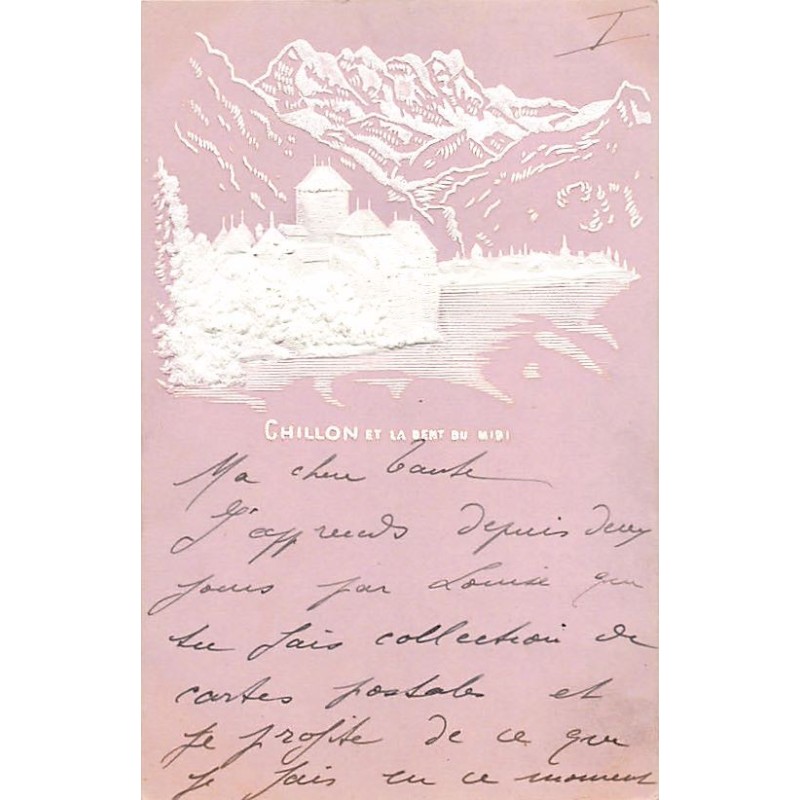 I
CHILLON ET LA DENT DU MIDI
Ma chère Tante
J'apprends depuis deux
jours par Louise que
tu fais collection de
cartes postales et
je profite de ce que
je fais en ce moment